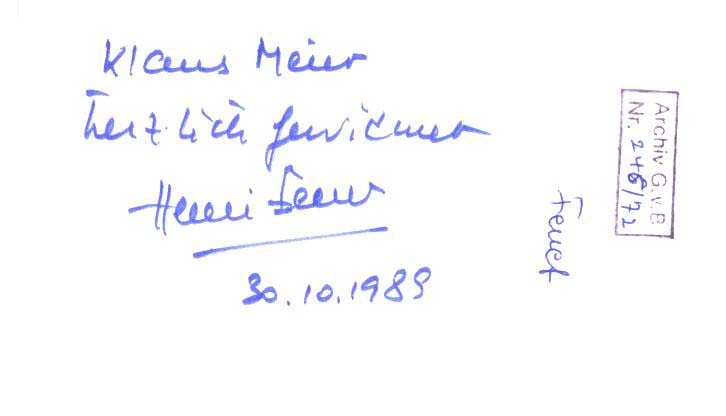 Klaus Meier
herzlich gewidmet
Henri
30.10.1989
Archiv G.v.B
Nr. 246/72